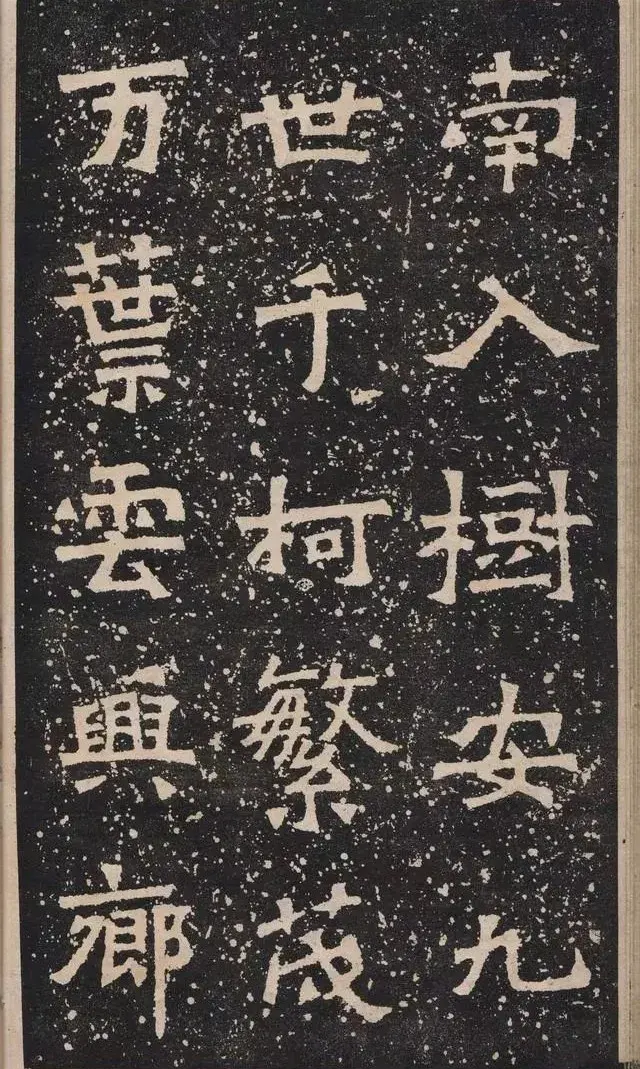 南入樹安九
世千柯繁茂
万葉雲興鄉